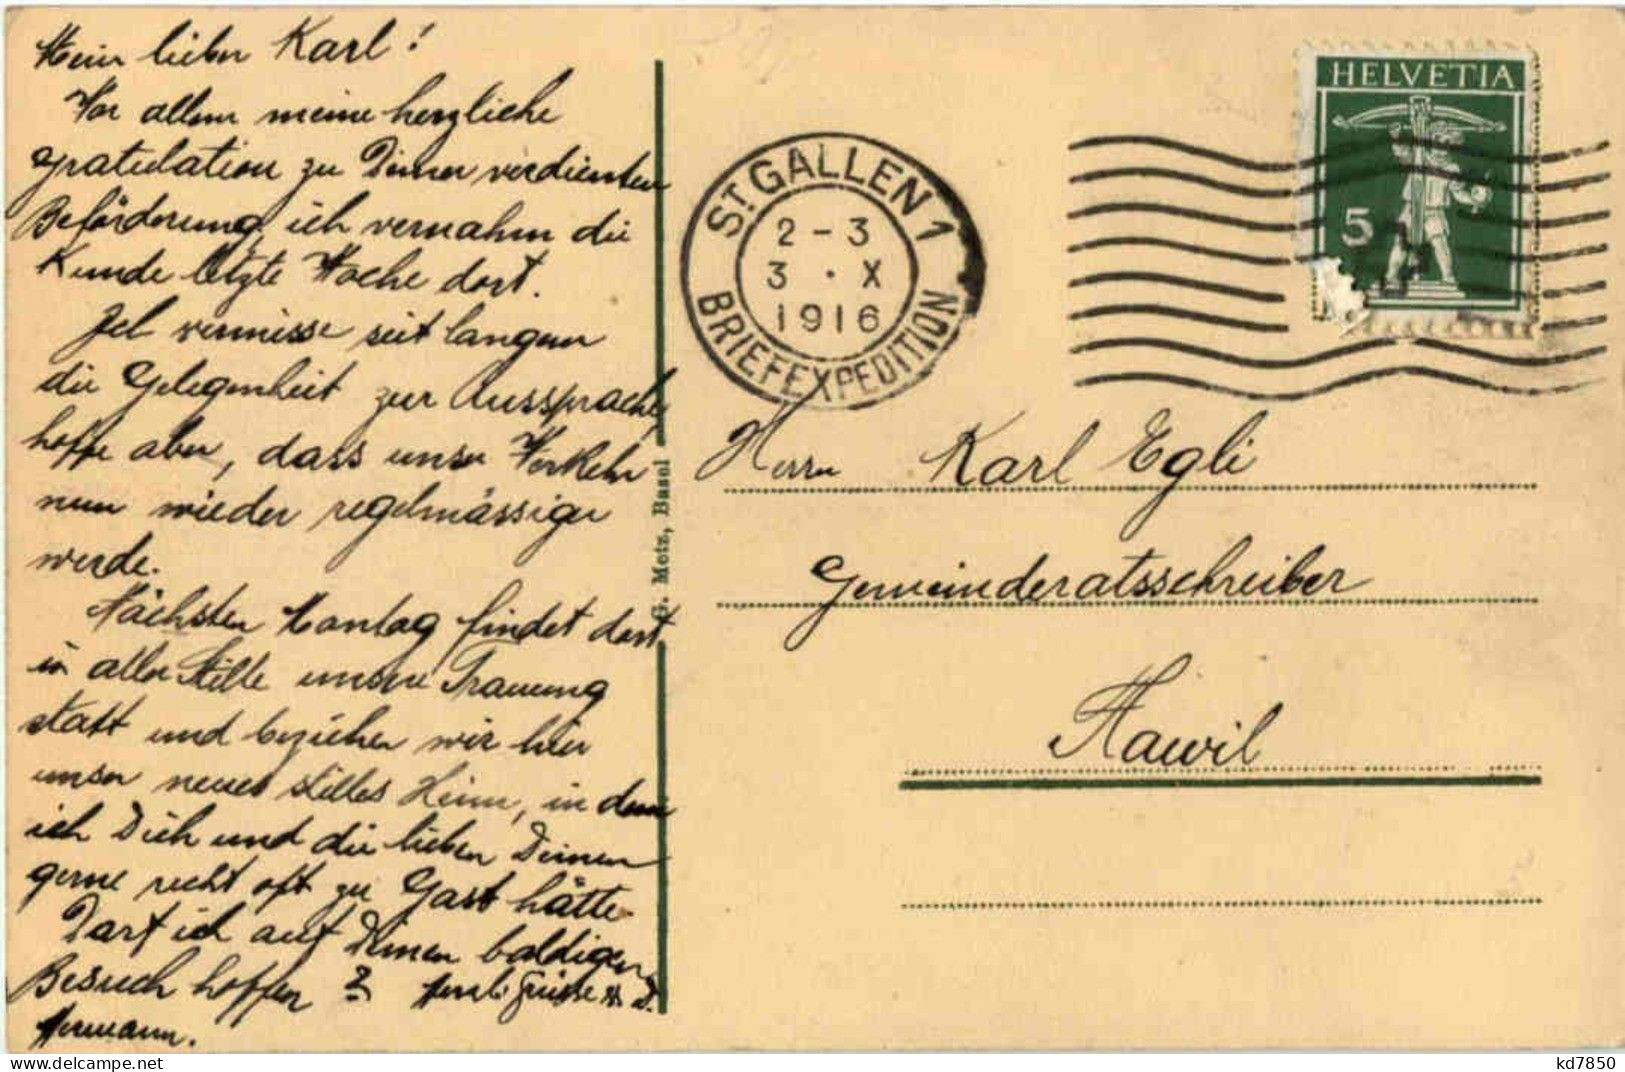 Mein lieber Karl!
Vor allem meine herzliche
gratulation zu Deiner verdienten
Beförderung, ich vernahm die
Kunde letzte Woche dort.
Ich vermisse seit langem
die Gelegenheit zur Aussprache,
hoffe aber, dass unser Verkehr
nun wieder regelmässiger
werde.
Nächsten Montag findet dort
in aller Stille unsere Trauung
statt und beziehen wir hier
unser neues stilles Heim, in dem
ich Dich und die lieben Deinen
gerne recht oft zu Gast hätte.
Darf ich auf Deinen baldigen
Besuch hoffen? Herzl. Grüsse
Hermann.
G. Metz, Basel
ST. GALLEN 1
2-3
3 · X
1916
BRIEFEXPEDITION
HELVETIA
5
Herrn Karl Egli
Gemeinderatsschreiber
Flawil
kd7850